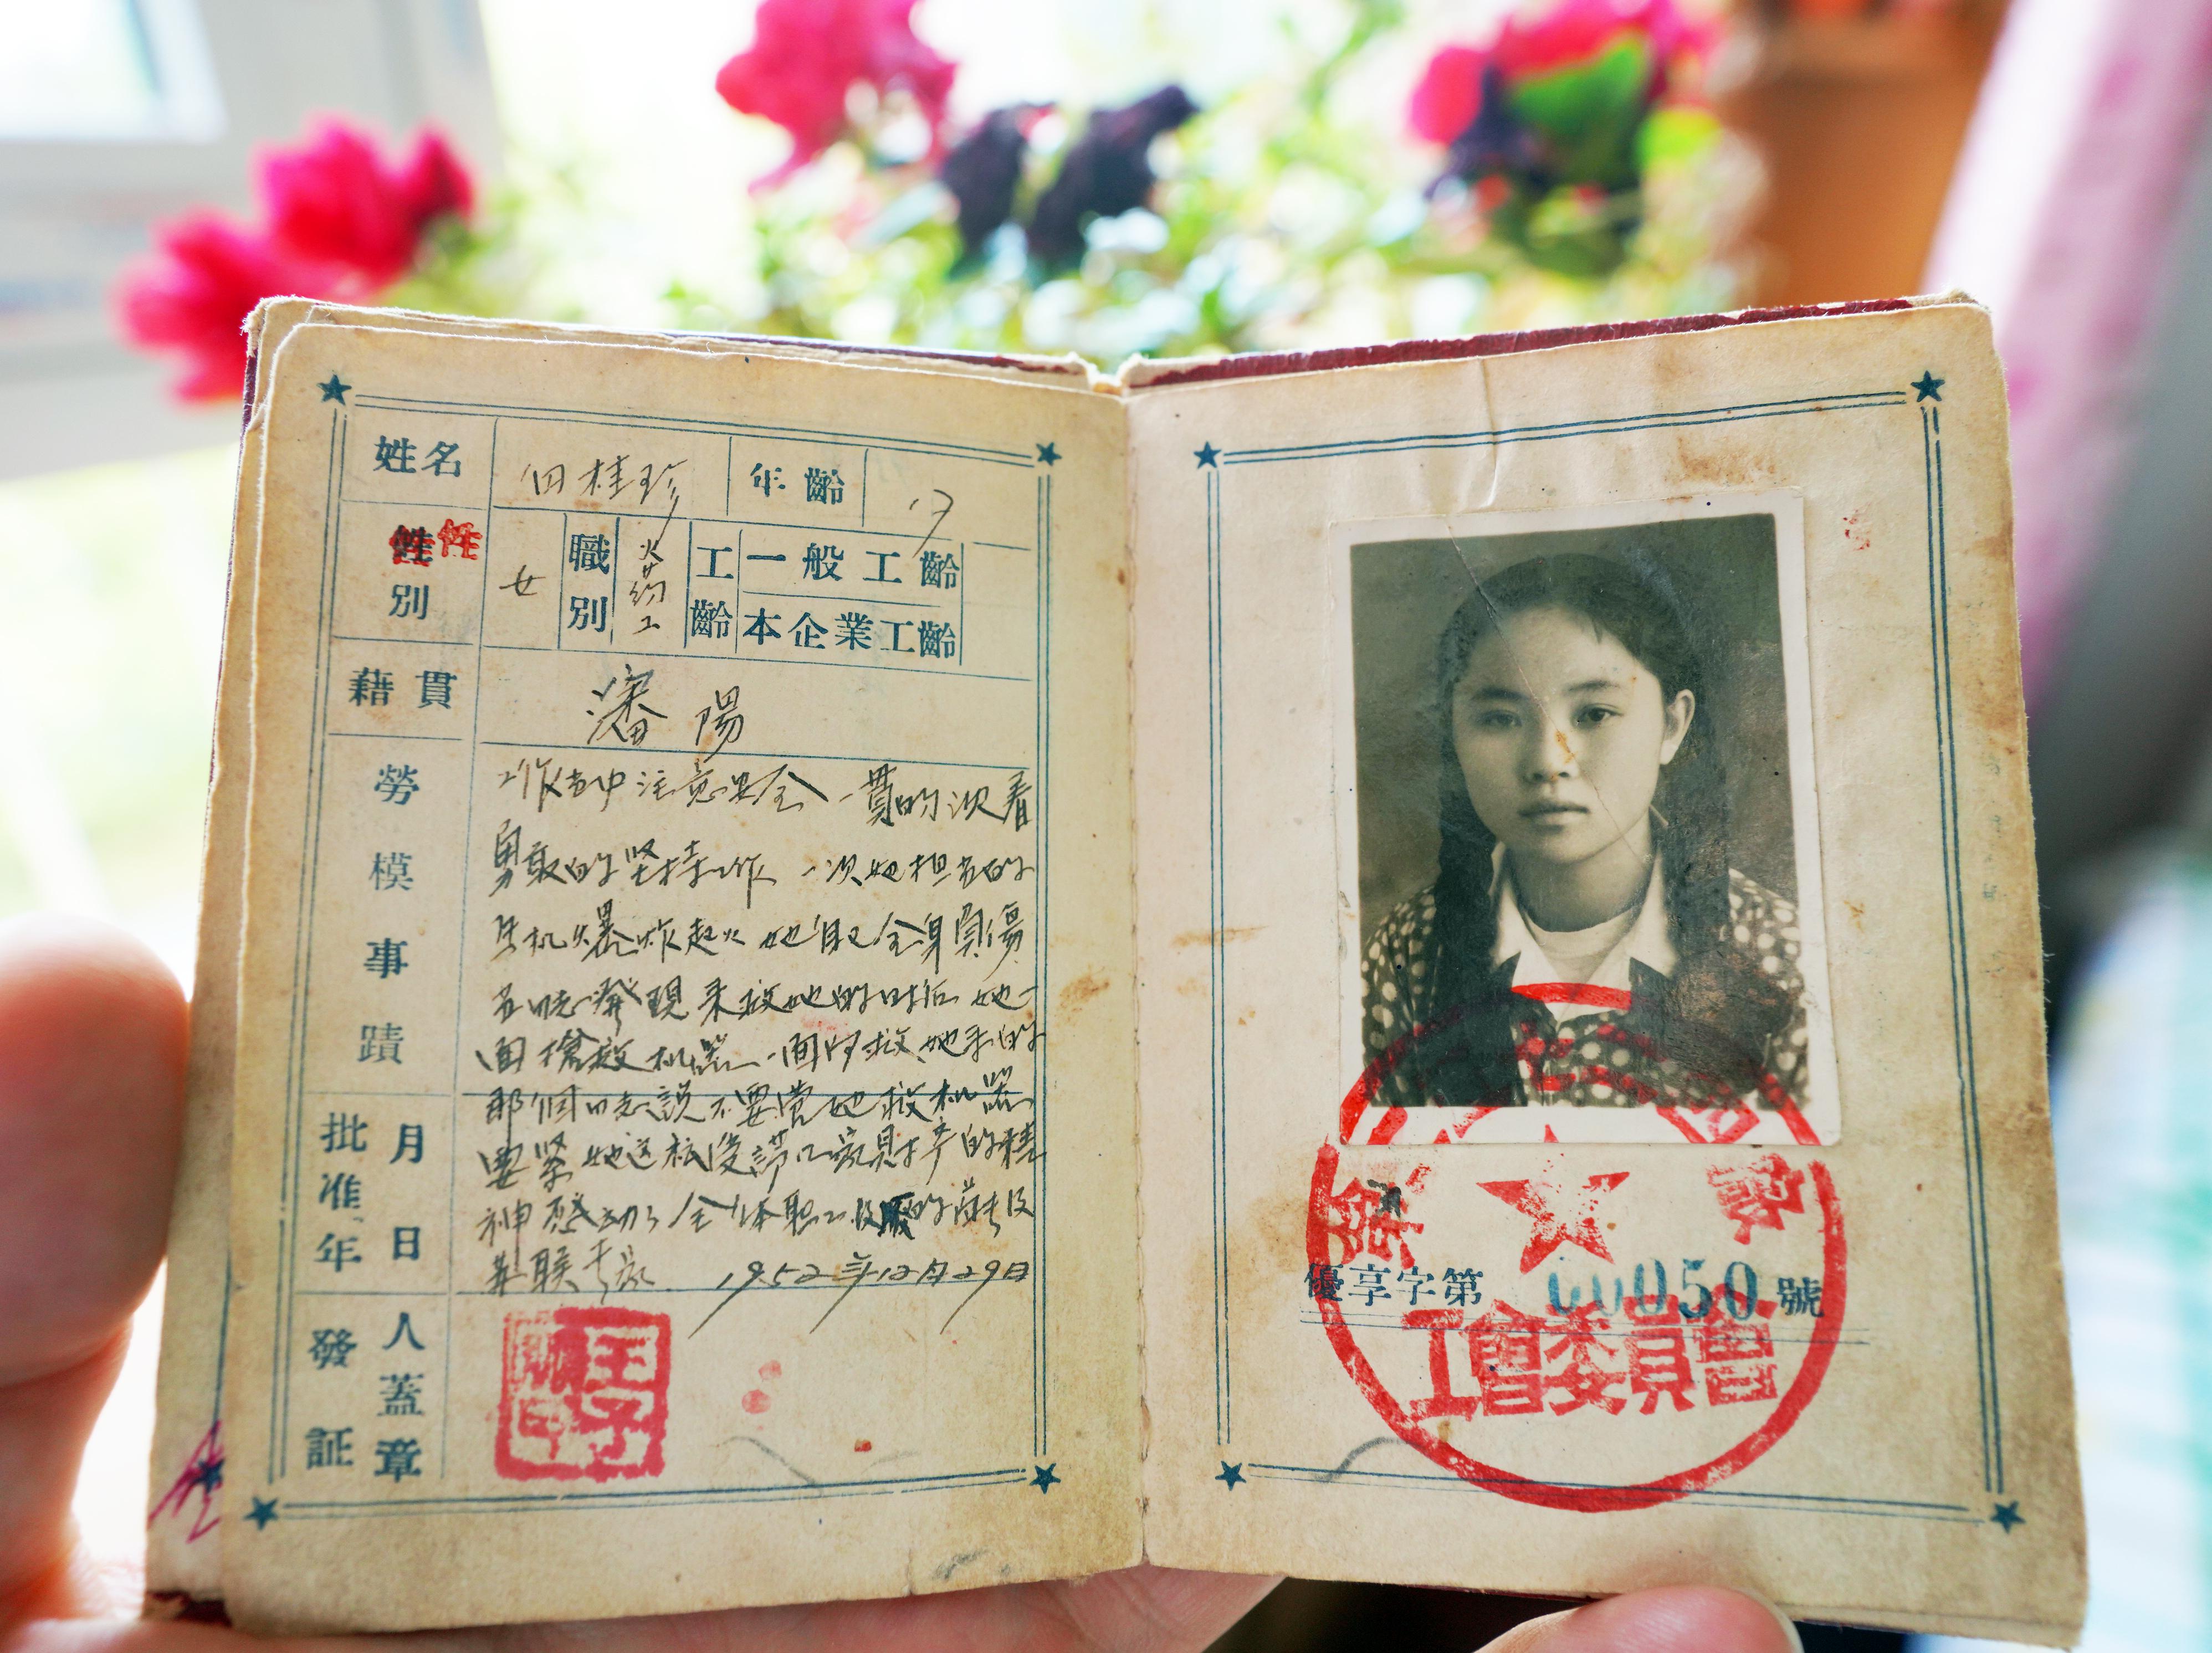 姓名 田桂珍 年齡 17
性
性別 女 職別 火药工 工齡 一般工齡
本企業工齡
藉貫 瀋陽
勞模事蹟
工作当中注意安全 一貫的沉着
勇敢的坚持工作 一次她担当的
机 爆炸起火 她自己全身負傷
同志發現来救她的时候 她一
面搶救机器一面向救她来的
那個同志説不要管她救机器
要緊 她这种愛護国家財产的精
神 感动了全体职工
1952年12月29日
批准年月日
發証人蓋章
優享字第 00050 號
工會委員會